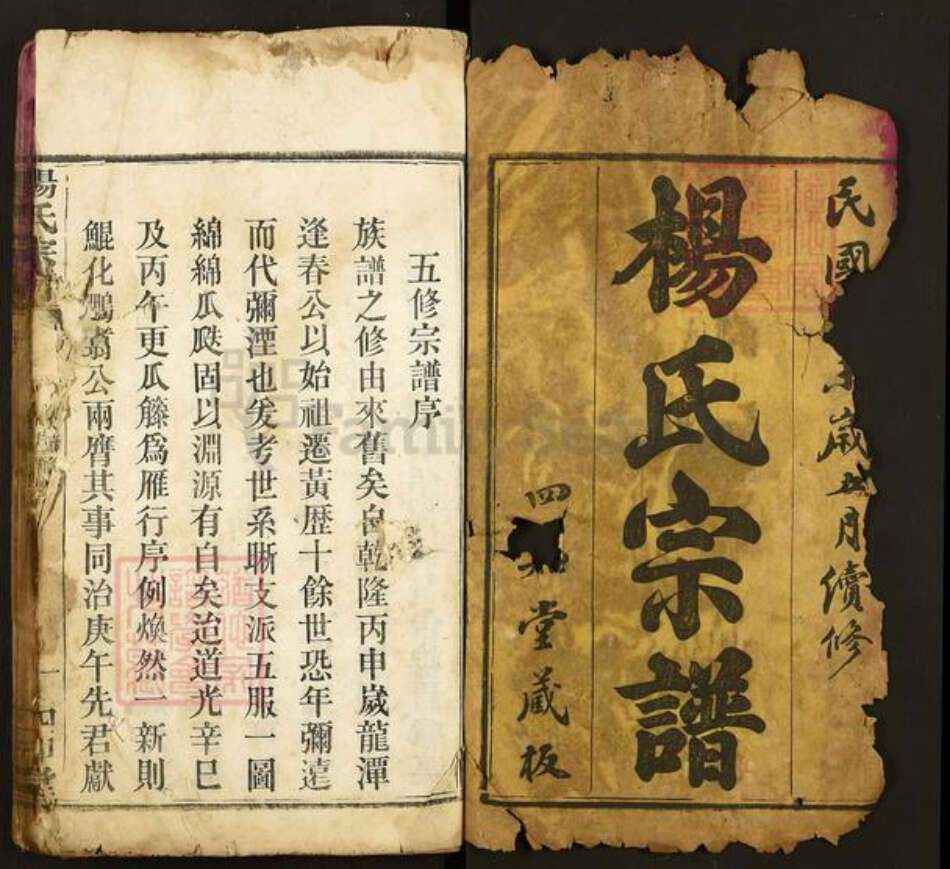 民國
歲
月續修
楊氏宗譜
四
堂藏板
五修宗譜序
族譜之修由來舊矣自乾隆丙申歲龍潭
逢春公以始祖遷黃歷十餘世恐年彌遠
而代彌湮也爰考世系晰支派五服一圖
綿綿瓜瓞固以淵源有自矣迨道光辛巳
及丙午更瓜籐為雁行序例煥然一新則
鯤化鵬翥公兩膺其事同治庚午先君獻
楊氏宗
一